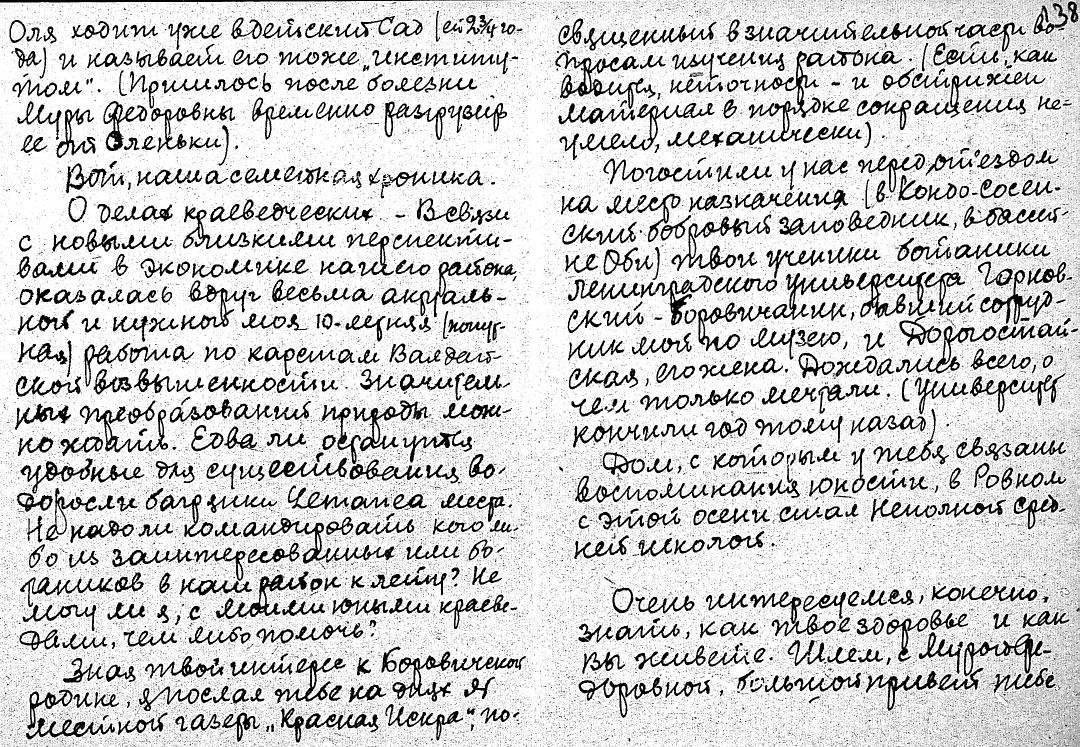 Оля ходит уже в детский Сад (ей 2 3/4 го-
да) и называет его тоже „институ-
том". (Пришлось после болезни
Муры Федоровны временно разгрузить
ее от Оленьки).
Вот, наша семейная хроника.
О делах краеведческих. – В связи
с новыми близкими перспекти-
вами в экономике нашего района,
оказалась вдруг весьма актуаль-
ной и нужной моя 10-летняя (попут-
ная) работа по карстам Валдай-
ской возвышенности. Значитель-
ных преобразований природы мож-
но ждать. Едва ли останутся
удобные для существования во-
доросли багрянки Lemanea места.
Не надо ли командировать кого ли-
бо из заинтересованных или бо-
таников в наш район к лету? Не
могу ли я, с моими юными краеве-
дами, чем либо помочь?
Зная твой интерес к Боровичской
родине, я послал тебе на днях №
местной газеты „Красная Искра", по-
138
священный в значительной части во-
просам изучения района. (Есть, как
водится, неточности – и обстрижен
материал в порядке сокращения не-
умело, механически).
Погостили у нас перед отъездом
на место назначения (в Кондо-Сосвин-
ский бобровый заповедник, в бассей-
не Оби) твои ученики ботаники
Ленинградского университета Гарнов-
ский – боровичанин, бывший сотруд-
ник мой по музею, и Дорогостай-
ская, его жена. Дождались всего, о
чем только мечтали. (Университет
кончили год тому назад).
Дом, с которым у тебя связаны
воспоминания юности, в Ровном
с этой осени стал Неполной сред-
ней школой.
Очень интересуемся, конечно,
знать, как твое здоровье и как
Вы живете. Шлем, с Мурой Фе-
доровной, большой привет тебе